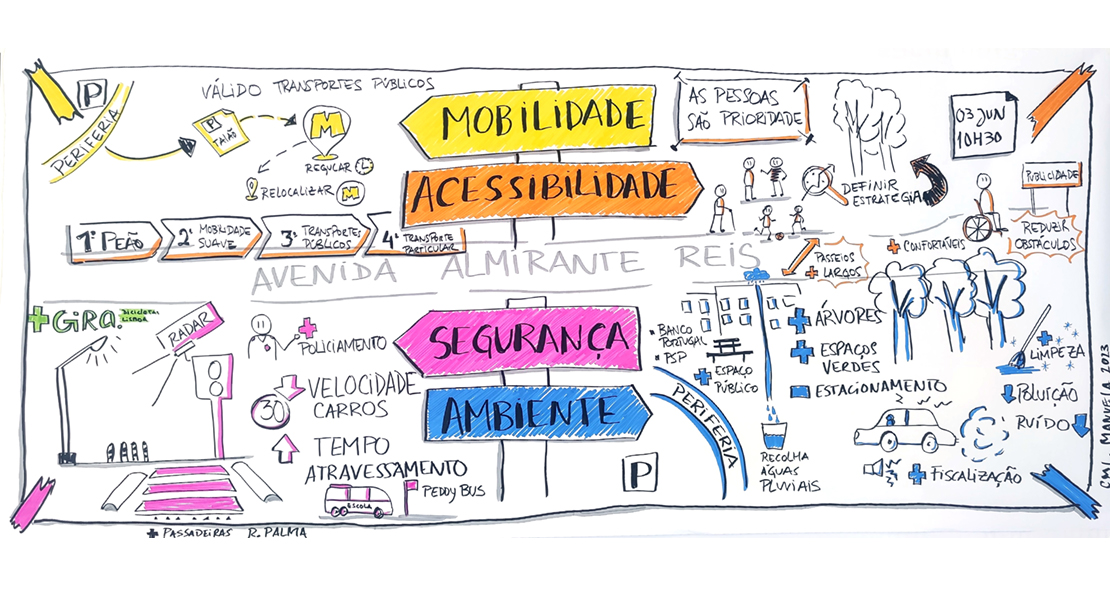 P
PERIFERIA
VÁLIDO TRANSPORTES PÚBLICOS
P
TALÃO
M
REGULAR
RELOCALIZAR M
MOBILIDADE
ACESSIBILIDADE
AS PESSOAS
SÃO PRIORIDADE
03 JUN
10H30
DEFINIR
ESTRATÉGIA
PUBLICIDADE
REDUZIR
OBSTÁCULOS
+ CONFORTÁVEIS
PASSEIOS
+ LARGOS
1º PEÃO
2º MOBILIDADE
SUAVE
3º TRANSPORTES
PÚBLICOS
4º TRANSPORTE
PARTICULAR
AVENIDA ALMIRANTE REIS
+ GIRA.
BICICLETAS
LISBOA
RADAR
+
POLICIAMENTO
VELOCIDADE
CARROS
30
TEMPO
ATRAVESSAMENTO
ESCOLA
PEDDY BUS
+ PASSADEIRAS R. PALMA
SEGURANÇA
AMBIENTE
BANCO
PORTUGAL
PSP
+ ESPAÇO
PÚBLICO
PERIFERIA
P
RECOLHA
ÁGUAS
PLUVIAIS
+ ÁRVORES
+ ESPAÇOS
VERDES
- ESTACIONAMENTO
+
LIMPEZA
POLUIÇÃO
RUÍDO
+ FISCALIZAÇÃO